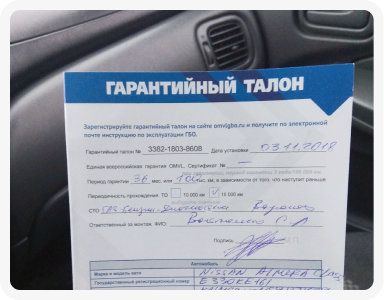 ГАРАНТИЙНЫЙ ТАЛОН
Зарегистрируйте гарантийный талон на сайте omvlgbo.ru и получите по электронной
почте инструкцию по эксплуатации ГБО.
Гарантийный талон № 3382-1803-8608 Дата установки 03.11.2018
Единая всероссийская гарантия OMVL. Сертификат № —
Период гарантии 36 мес. или 100 тыс. км, в зависимости от того, что наступит раньше
Периодичность прохождения ТО: 10 000 км 15 000 км
СТО
Ответственный за монтаж ФИО:
Подпись
Автомобиль
Марка и модель авто NISSAN ALMERA
Государственный регистрационный номер